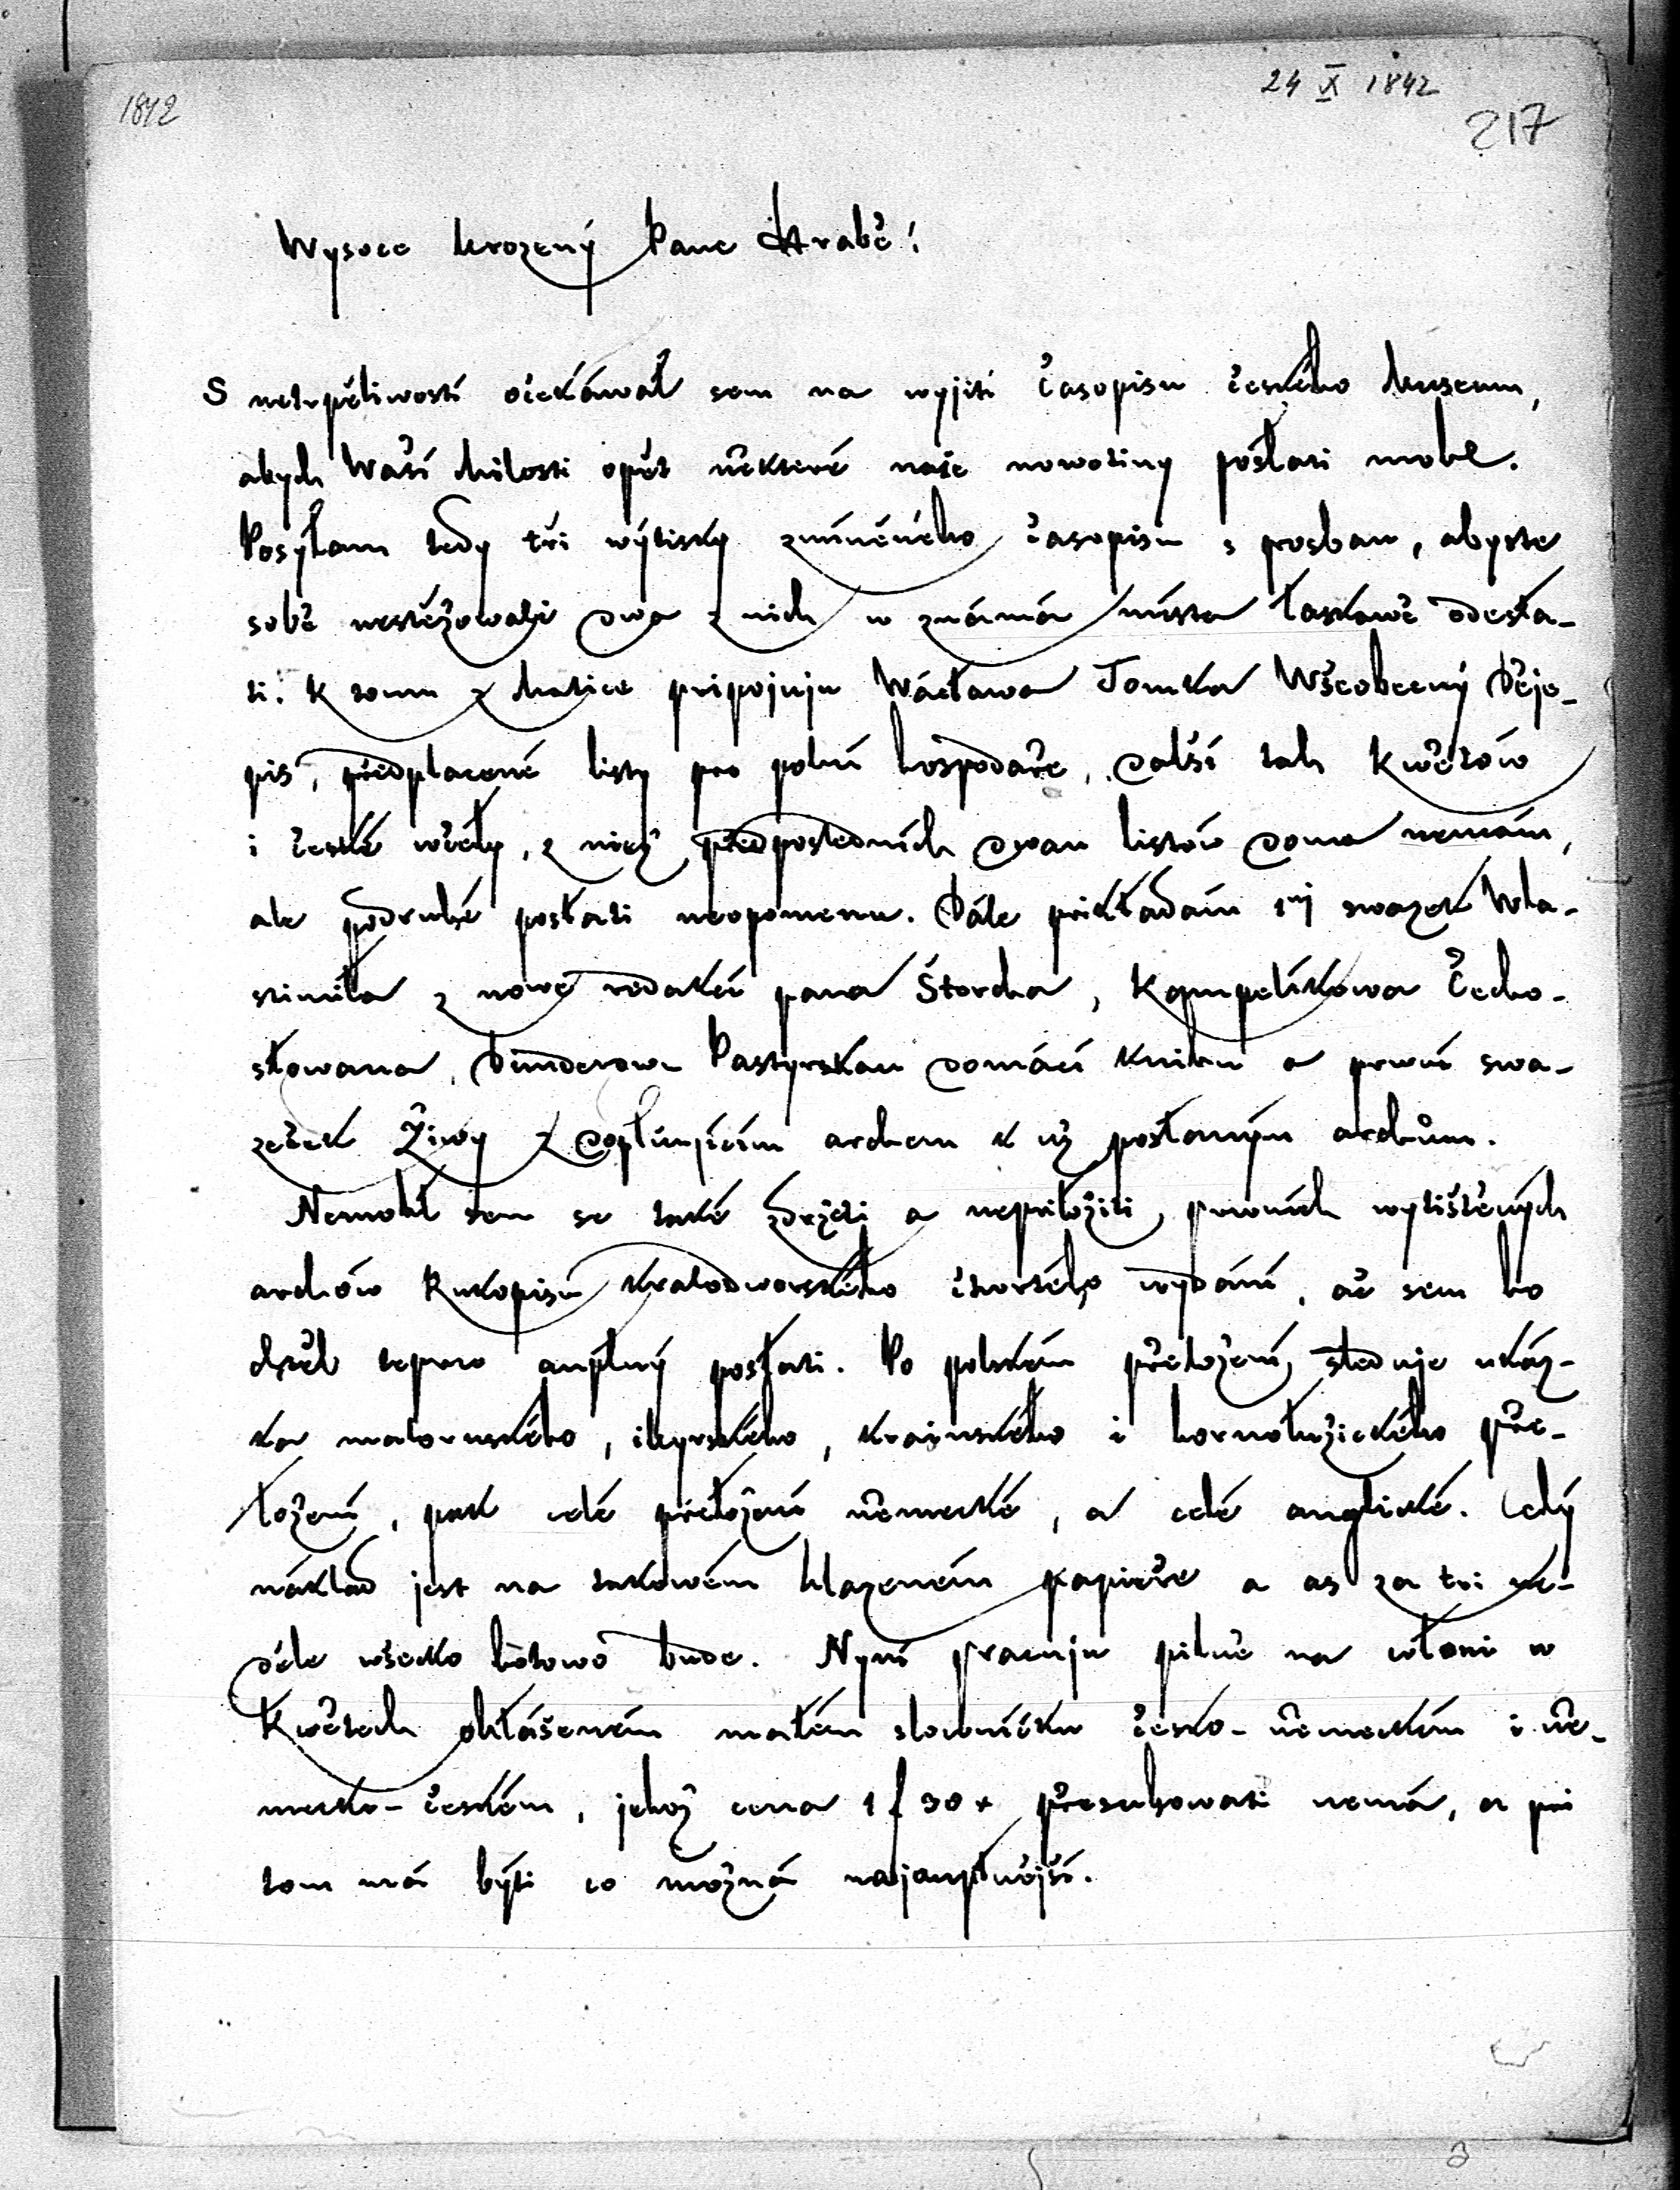 1842
24 X 1842
217
Wysoce Urozený Pane Hrabě!
S netrpěliwostí očekáwał sem na wyjití Časopisu českého Museum,
abych Waší Milosti opět některé naše nowotiny posłati mohl.
Posýłam tedy tři wýtisky zmíněného časopisu s prosbau, abyste
sobě nestěžowali dwa z nich w známá místa łaskawě odesła-
ti. K tomu z Matice pripojuju Wácława Tomka Wšeobecný Děje-
pis, předplacené listy pro polní hospodáře, další tah Kwětów
i české wčeły, z niež předposledních dwau listów doma nemám,
ale podruhé posłati neopomenu. Dále prikładám 1ní swazek Wla-
stimiła z nowé redakcí pana Štorcha, Kampelíkowa Čecho-
słowana, Dindrowu Pastyrskau domácí knihu a prwní swa-
zeček Žiwy z dopłňujícím archem k už posłaným archům.
Nemohł sem se také zdržeti a nepriložiti, prwních wytištěných
archów Rukopisu Kralodworského čtwrtého wydání, ač sem ho
chtěl teprw auplný posłati. Po polském přełožení, sleduje ukáz-
ka maloruského, ilyrského, krajnského i hornołužického pře-
łožení, pak celé přełožení německé, a celé anglické. Celý
náklad jest na takowém hlazeném papieře a as za tri ne-
děle wšecko hotowo bude. Nyní pracuju pilně na włoni w
Kwětech ohłášeném małém słowníčku česko-německém i ně-
mecko-českém, jehož cena 1 f 30 x přesahowati nemá, a pri
tom má býti co možná najauplnější.